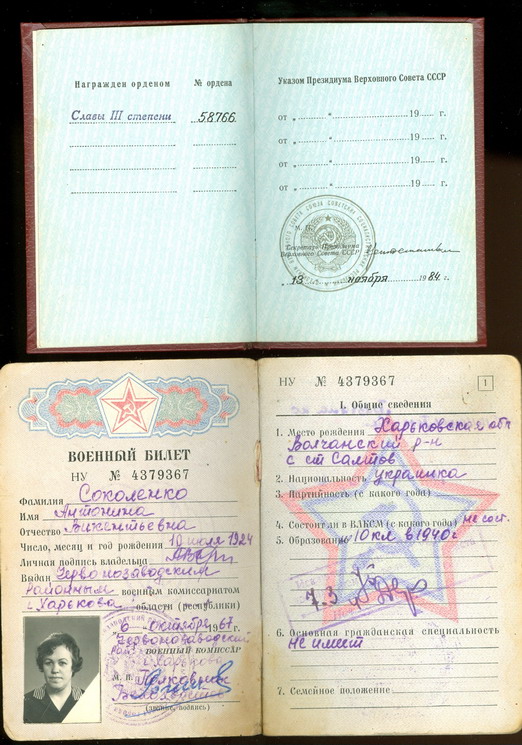 Награжден орденом № ордена
Славы III степени 58766
Указом Президиума Верховного Совета СССР
от „ “ 19 г.
от „ “ 19 г.
от „ “ 19 г.
от „ “ 19 г.
М. П.
Секретарь Президиума
Верховного Совета СССР
„13 ноября 1984 г.
ВОЕННЫЙ БИЛЕТ
НУ № 4379367
Фамилия Соколенко
Имя Антонина
Отчество Викентьевна
Число, месяц и год рождения 10 июля 1924
Личная подпись владельца
Выдан Червонозаводским
районным военным комиссариатом
г. Харькова области (республики)
6 октября 1967 г.
Червонозаводский
рай ВОЕННЫЙ КОМИССАР
г. Харькова
М. П. Полковник
(звание, подпись)
НУ № 4379367 1
I. Общие сведения
1. Место рождения Харьковская обл
Волчанский р-н
с ст Салтов
2. Национальность украинка
3. Партийность (с какого года)
4. Состоял в ВЛКСМ (с какого года) не сост.
5. Образование 10 кл в 1940 г
7.3
6. Основная гражданская специальность
Не имеет
7. Семейное положение